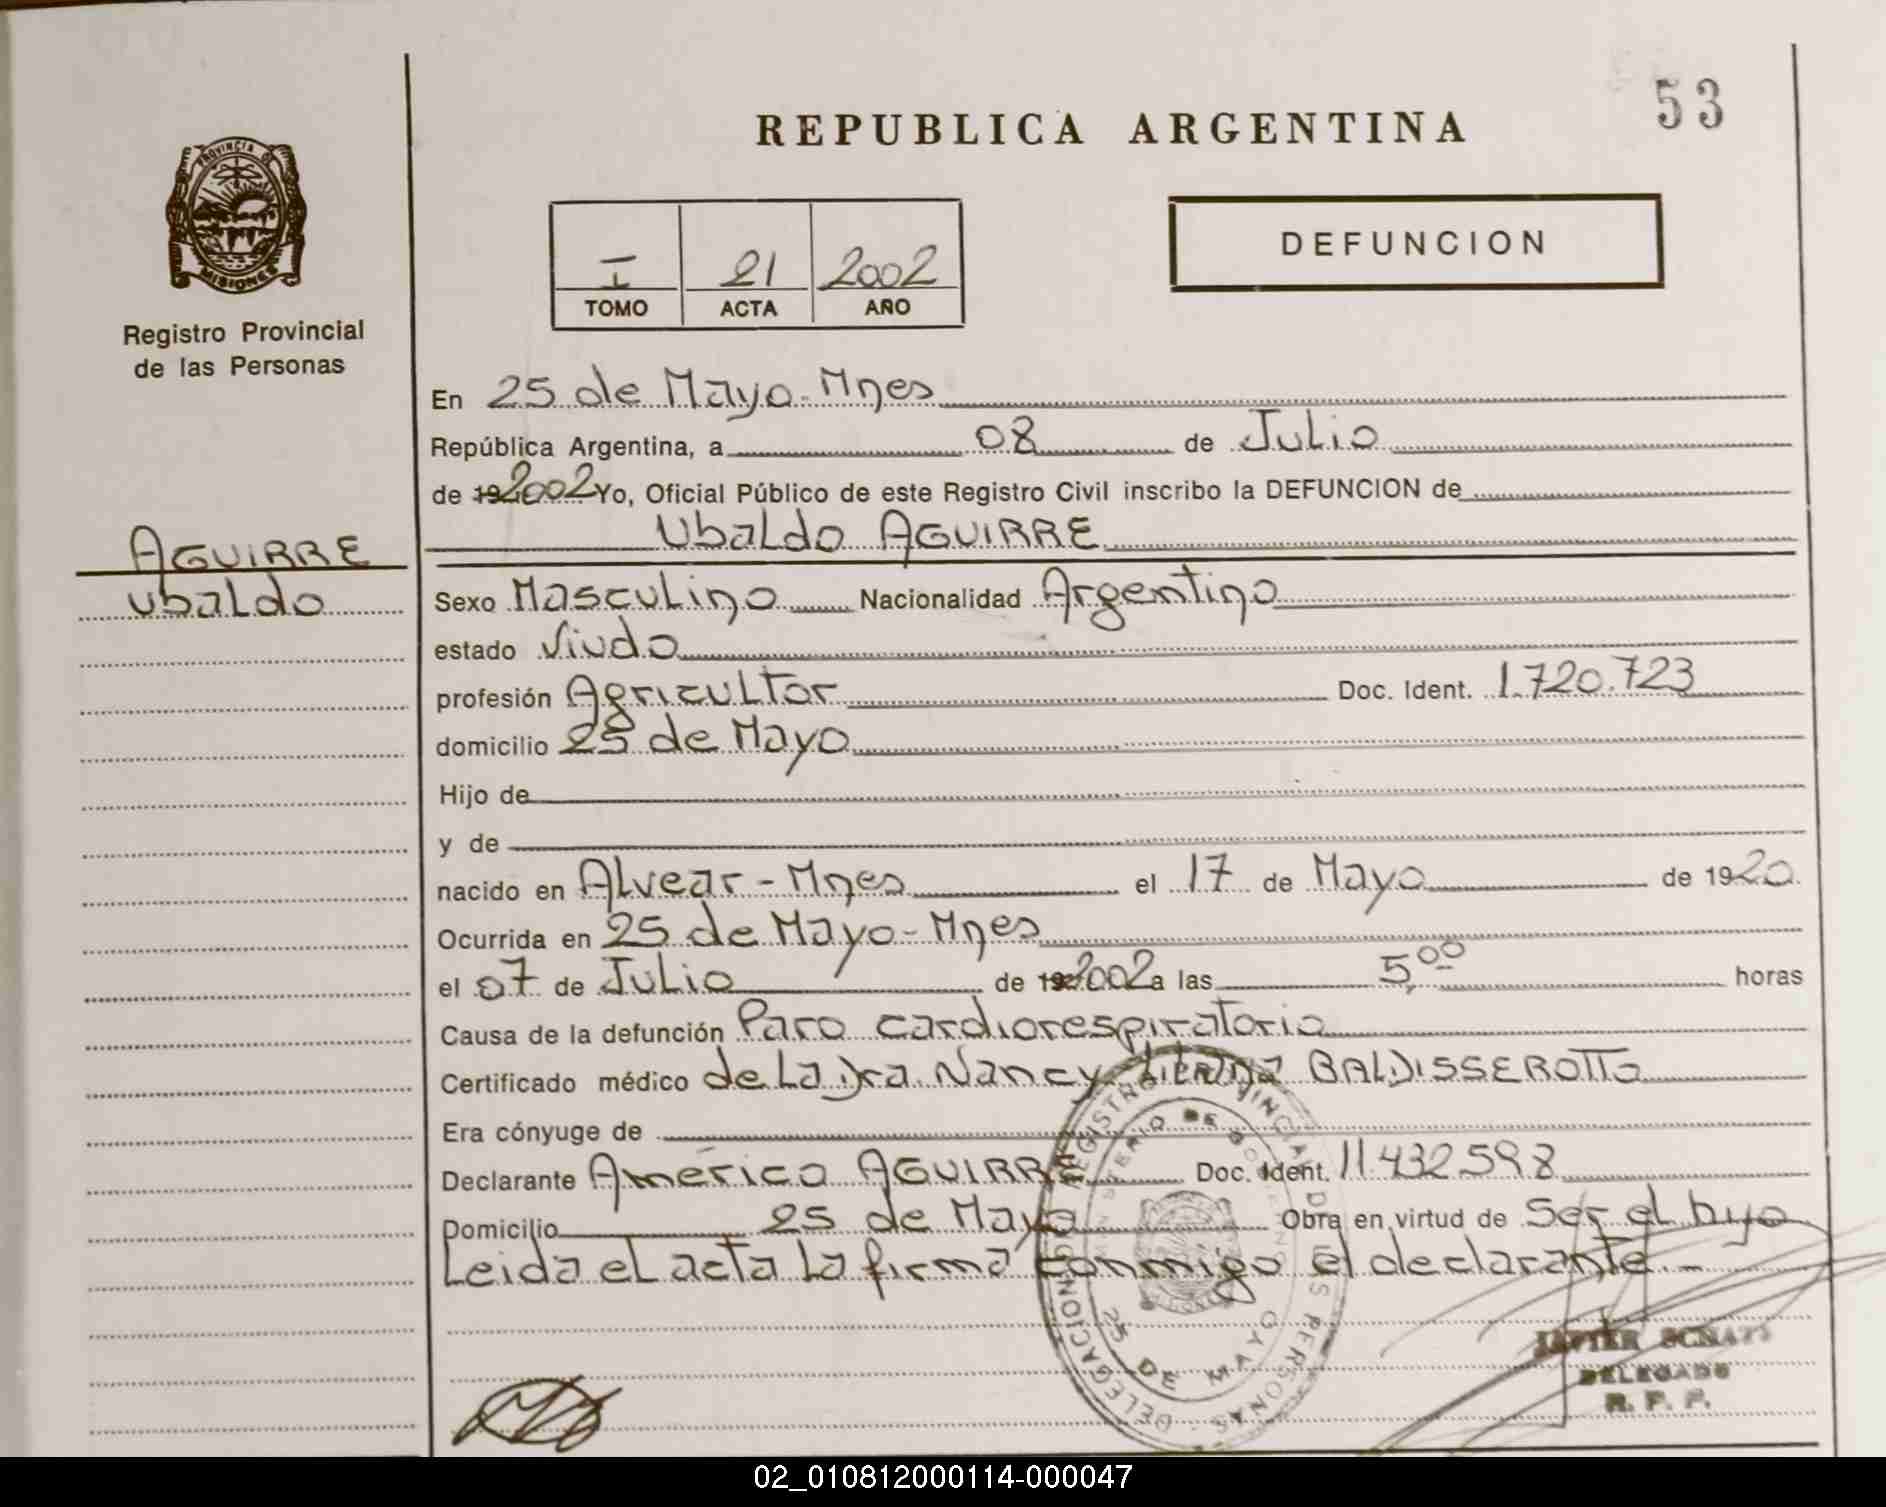 53
REPUBLICA ARGENTINA
PROVINCIA DE
MISIONES
Registro Provincial
de las Personas
DEFUNCION
I 21 2002
TOMO ACTA AÑO
En 25 de Mayo-Mnes
República Argentina, a 08 de Julio
de 192002 Yo, Oficial Público de este Registro Civil inscribo la DEFUNCION de
Ubaldo AGUIRRE
AGUIRRE
Ubaldo
Sexo Masculino Nacionalidad Argentino
estado Viudo
profesión Agricultor Doc. Ident. 1.720.723
domicilio 25 de Mayo
Hijo de
y de
nacido en Alvear-Mnes el 17 de Mayo de 1920.
Ocurrida en 25 de Mayo-Mnes
el 07 de Julio de 192002 a las 5,00 horas
Causa de la defunción Paro cardiorespiratorio
Certificado médico de La Dra. Nancy BALDISSEROTTO
Era cónyuge de
Declarante Américo AGUIRRE Doc. Ident. 11.432.598
Domicilio 25 de Mayo Obra en virtud de Ser el hijo
Leida el acta La firma conmigo el declarante.-
DELEGACION REGISTRO PROVINCIAL DE LAS PERSONAS
25 DE MAYO
JAVIER
DELEGADO
R. P. P.
02_010812000114-000047